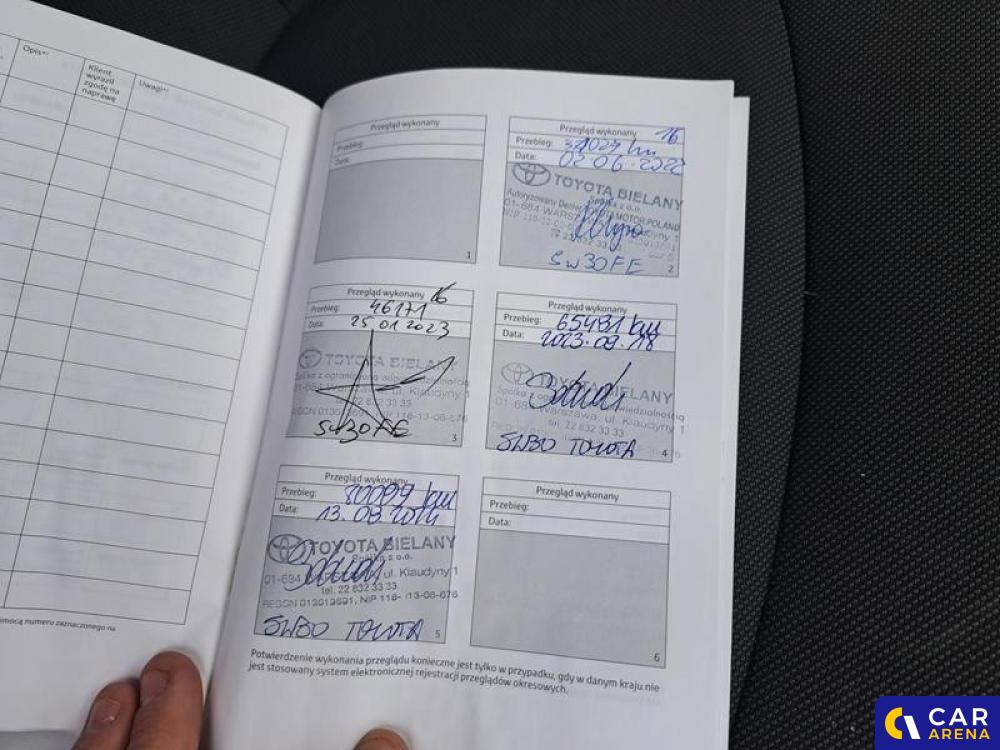 Opis*⁾
Klient
wyraził
zgodę na
naprawę
Uwagi*⁾
pomocą numeru zaznaczonego na
Przegląd wykonany
Przebieg:
Data:
1
Przegląd wykonany 16
Przebieg: km
Data: 02.06.2022
TOYOTA BIELANY
Spółka z o.o.
Autoryzowany Dealer TOYOTA MOTOR POLAND
5W30FE
2
Przegląd wykonany 16
Przebieg: 46171
Data: 25 01 2023
TOYOTA BIELANY
Spółka z ograniczoną odpowiedzialnością
ul. Klaudyny 1
5W30FE
3
Przegląd wykonany
Przebieg: 65481 km
Data: 2023.09.18
TOYOTA BIELANY
Spółka z odpowiedzialnością
01-684 Warszawa, ul. Klaudyny 1
tel. 22 832 33 33
5W30 TOYOTA
4
Przegląd wykonany
Przebieg: km
Data: 13.08.2024
TOYOTA BIELANY
Spółka z o.o.
01-684 WARSZAWA, ul. Klaudyny 1
tel. 22 832 33 33
5W30 TOYOTA
5
Przegląd wykonany
Przebieg:
Data:
6
Potwierdzenie wykonania przeglądu konieczne jest tylko w przypadku, gdy w danym kraju nie
jest stosowany system elektronicznej rejestracji przeglądów okresowych.
CAR
ARENA